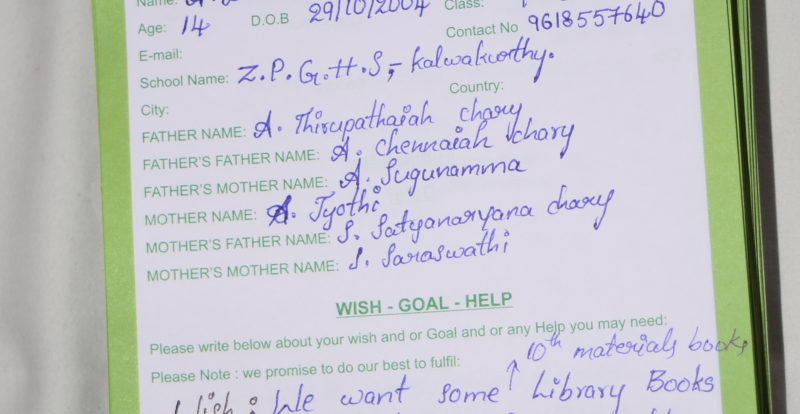 Name:
Age: 14 D.O.B 29/10/2004 Class:
E-mail: Contact No 9618557640
School Name: Z.P.G.H.S, - Kalwakworthy.
City: Country:
FATHER NAME: A. Thirupathaiah chary
FATHER'S FATHER NAME: A. Chennaiah chary
FATHER'S MOTHER NAME: A. Sugunamma
MOTHER NAME: A. Jyothi
MOTHER'S FATHER NAME: S. Satyanaryana chary
MOTHER'S MOTHER NAME: S. Saraswathi
WISH - GOAL - HELP
Please write below about your wish and or Goal and or any Help you may need:
Please Note : we promise to do our best to fulfil: 10th materials books
Wish : We want some ↑ Library Books